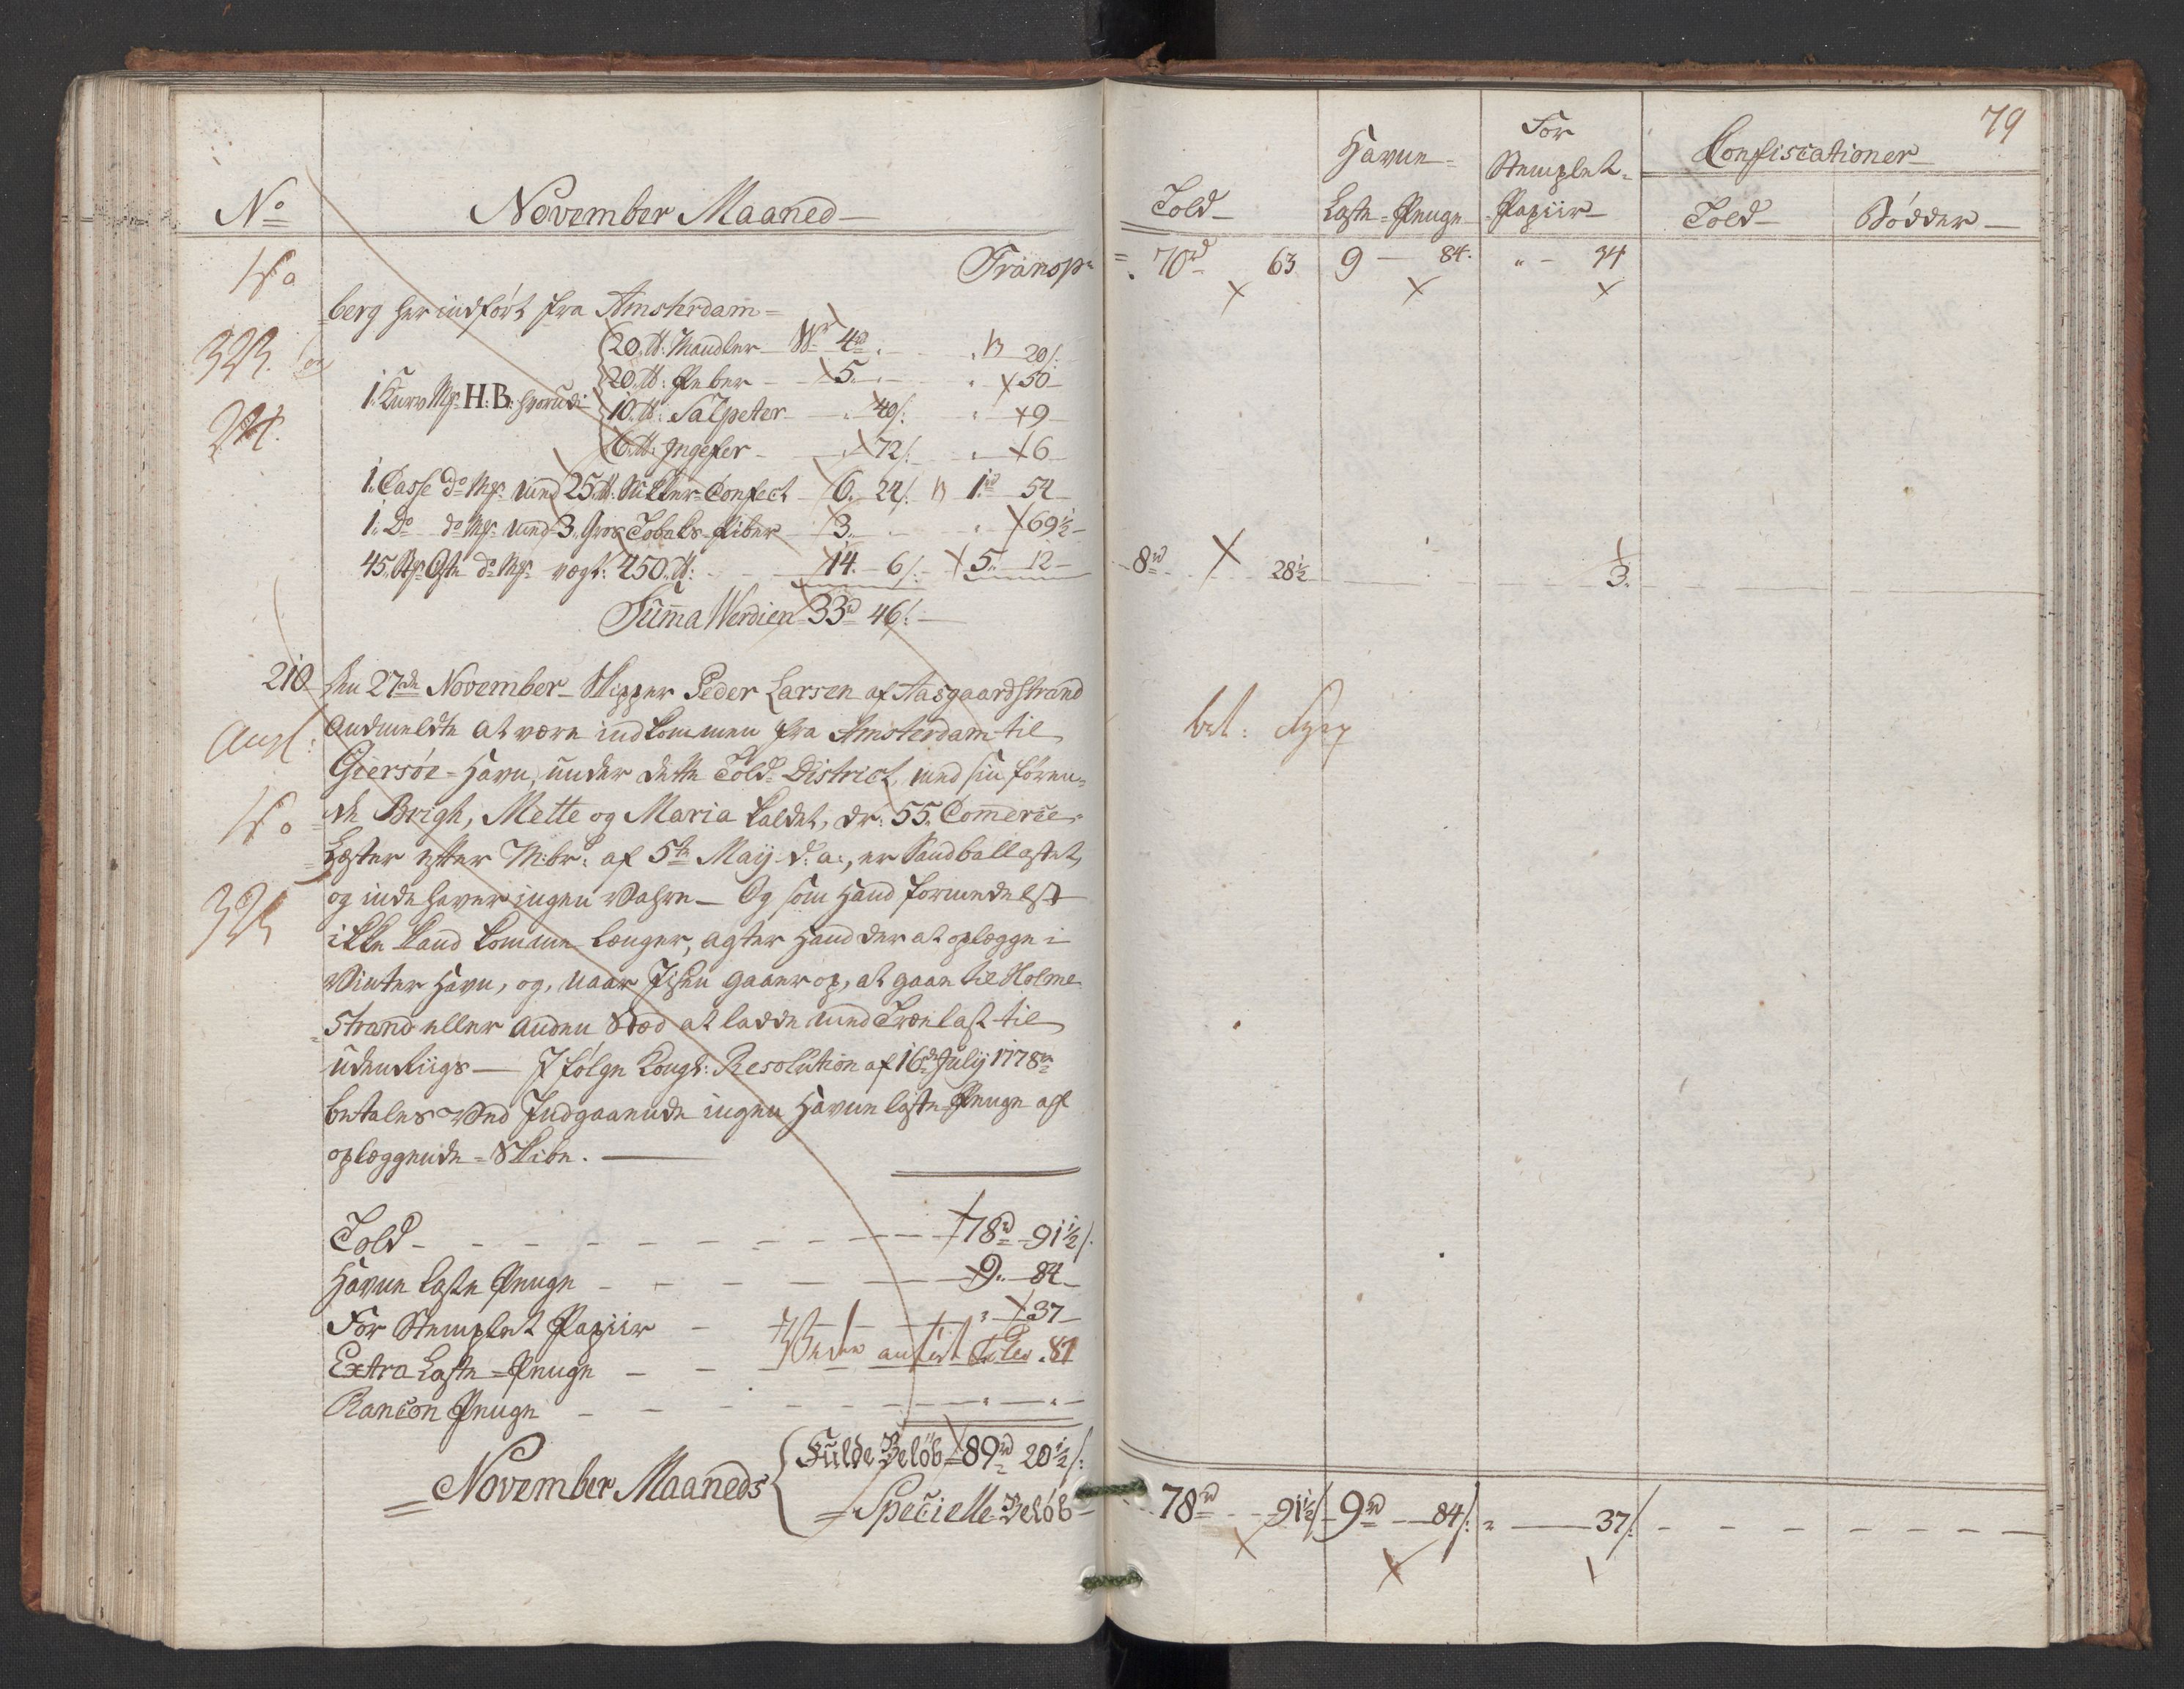 79
No
November Maaned
Told
Havne-
Laste-Penge
For
Stemplet-
Papiir
Confiscationer
Told
Bødder
Transp: 70rd 63 9 - 84. " - 34
berg her indført fra Amsterdam
323. og
24.
1. Kurv Mk. H:B: hvorudi
20 lb: Mandler Wr 4rd 20/.
20 lb: Peber 5. 50
10 lb: Salpeter 40/: 9
6 lb: Ingefer 72/. 6
1. Casse do Mk. med 25 lb. Sukker-Confect 6. 24/. 1rd 54
1. Do do Mk. med 3. Gros Tobaks-Piber 3. 69½
45. Stk Oste do Mk. vægt: 450 lb: 14. 6/. 5. 12 8rd 28½ 3.
Suma Verdien 33rd 46/:
210 Den 27de November Skipper Peder Larsen af Aasgaardstrand
Andmeldte at være indkommen fra Amsterdam til
Giersøe-Havn, under dette Told-District, med sin føren-
de Brigh, Mette og Maria kaldet, dr: 55. Comerce-
Læster efter M:br: af 5te May d: a:, er Sandballastet,
325
og indehaver ingen Vahre - Og som hand formedelst
ikke kand komme længer, agter hand der at oplægge i
Vinter Havn, og, naar Isen gaaer op, at gaae til Holme-
strand eller anden Stæd at ladde med Trælast til
udenriigs - I følge Kongl: Resolution af 16de July 1778
betales ved Indgaaende ingen Havne laste Penge af
oplæggende-Skibe.
Told 78rd 91½/.
Havne Laste Penge 9. 84
For Stemplet Papiir 37
Extra Laste-Penge
Rancon Penge
November Maaneds
Fulde Beløb 89rd 20½/:
Specielle Beløb 78rd 91½/ 9rd 84/: " 37/.